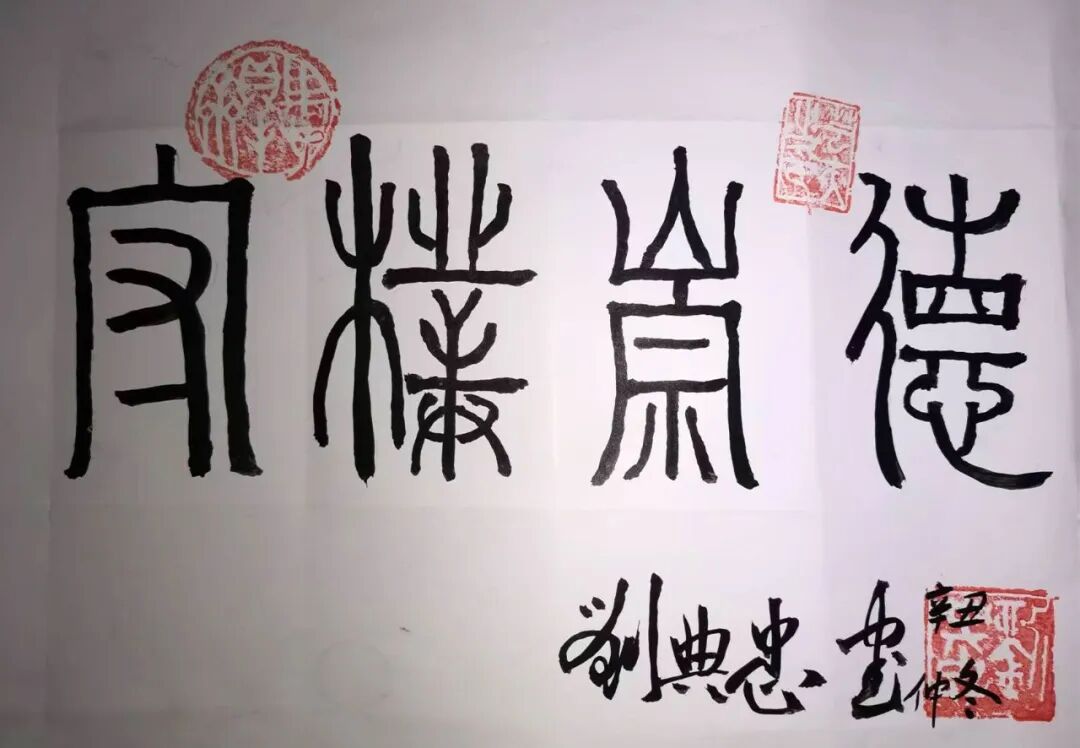 守樸崇德
劉典忠書
辛丑
仲冬